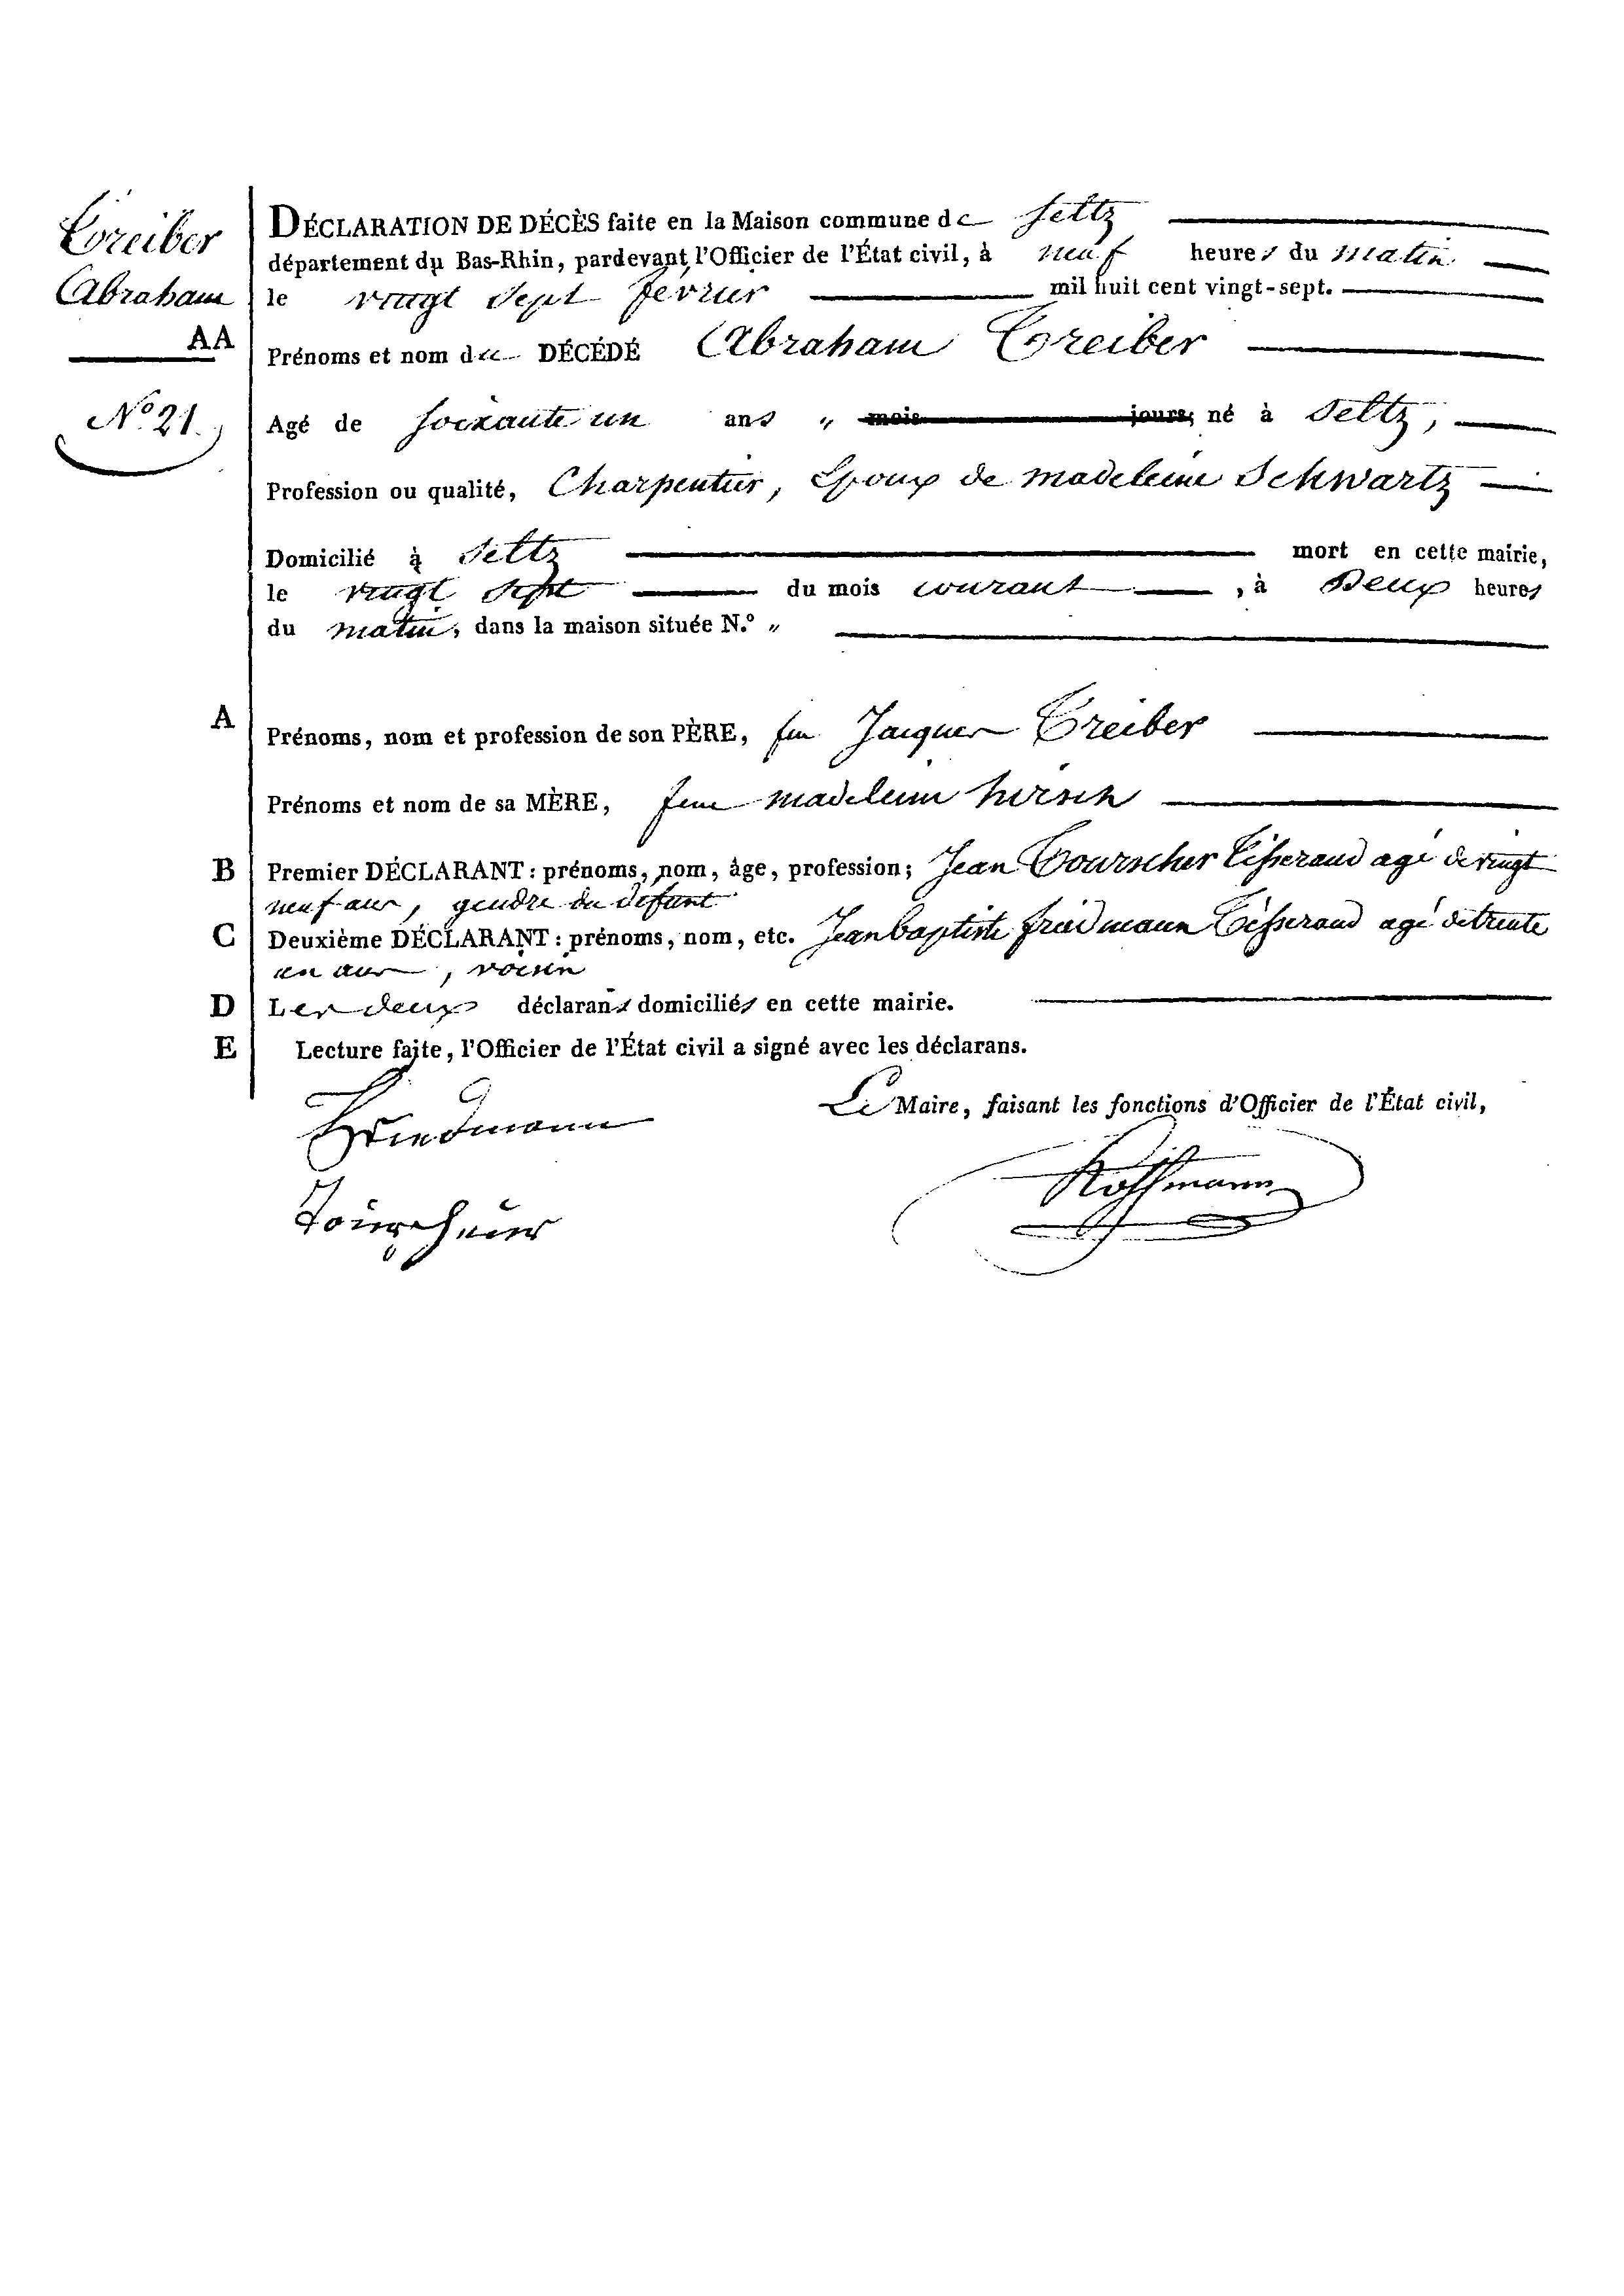 Treiber
Abraham
AA
N.º 21.
DÉCLARATION DE DÉCÈS faite en la Maison commune de Seltz
département du Bas-Rhin, pardevant l'Officier de l'État civil, à neuf heures du matin
le vingt sept fevrier mil huit cent vingt-sept.
Prénoms et nom du DÉCÉDÉ Abraham Treiber
Agé de soixante un ans „ mois jours, né à Seltz,
Profession ou qualité, Charpentier, Epoux de madeleine Schwartz
Domicilié à Seltz mort en cette mairie,
le vingt sept du mois courant, à Deux heures
du matin, dans la maison située N.º „
A
Prénoms, nom et profession de son PÈRE, feu Jacques Treiber
Prénoms et nom de sa MÈRE, feue madeleine hirsch
B Premier DÉCLARANT : prénoms, nom, âge, profession; Jean Tourscher Tisserand agé de vingt
neuf ans, gendre du défunt
C Deuxième DÉCLARANT : prénoms, nom, etc. Jean baptiste friedmann Tisserand agé de trente
un ans, voisin
D Les deux déclarans domiciliés en cette mairie.
E Lecture faite, l'Officier de l'État civil a signé avec les déclarans.
Le Maire, faisant les fonctions d'Officier de l'État civil,
Friedmann